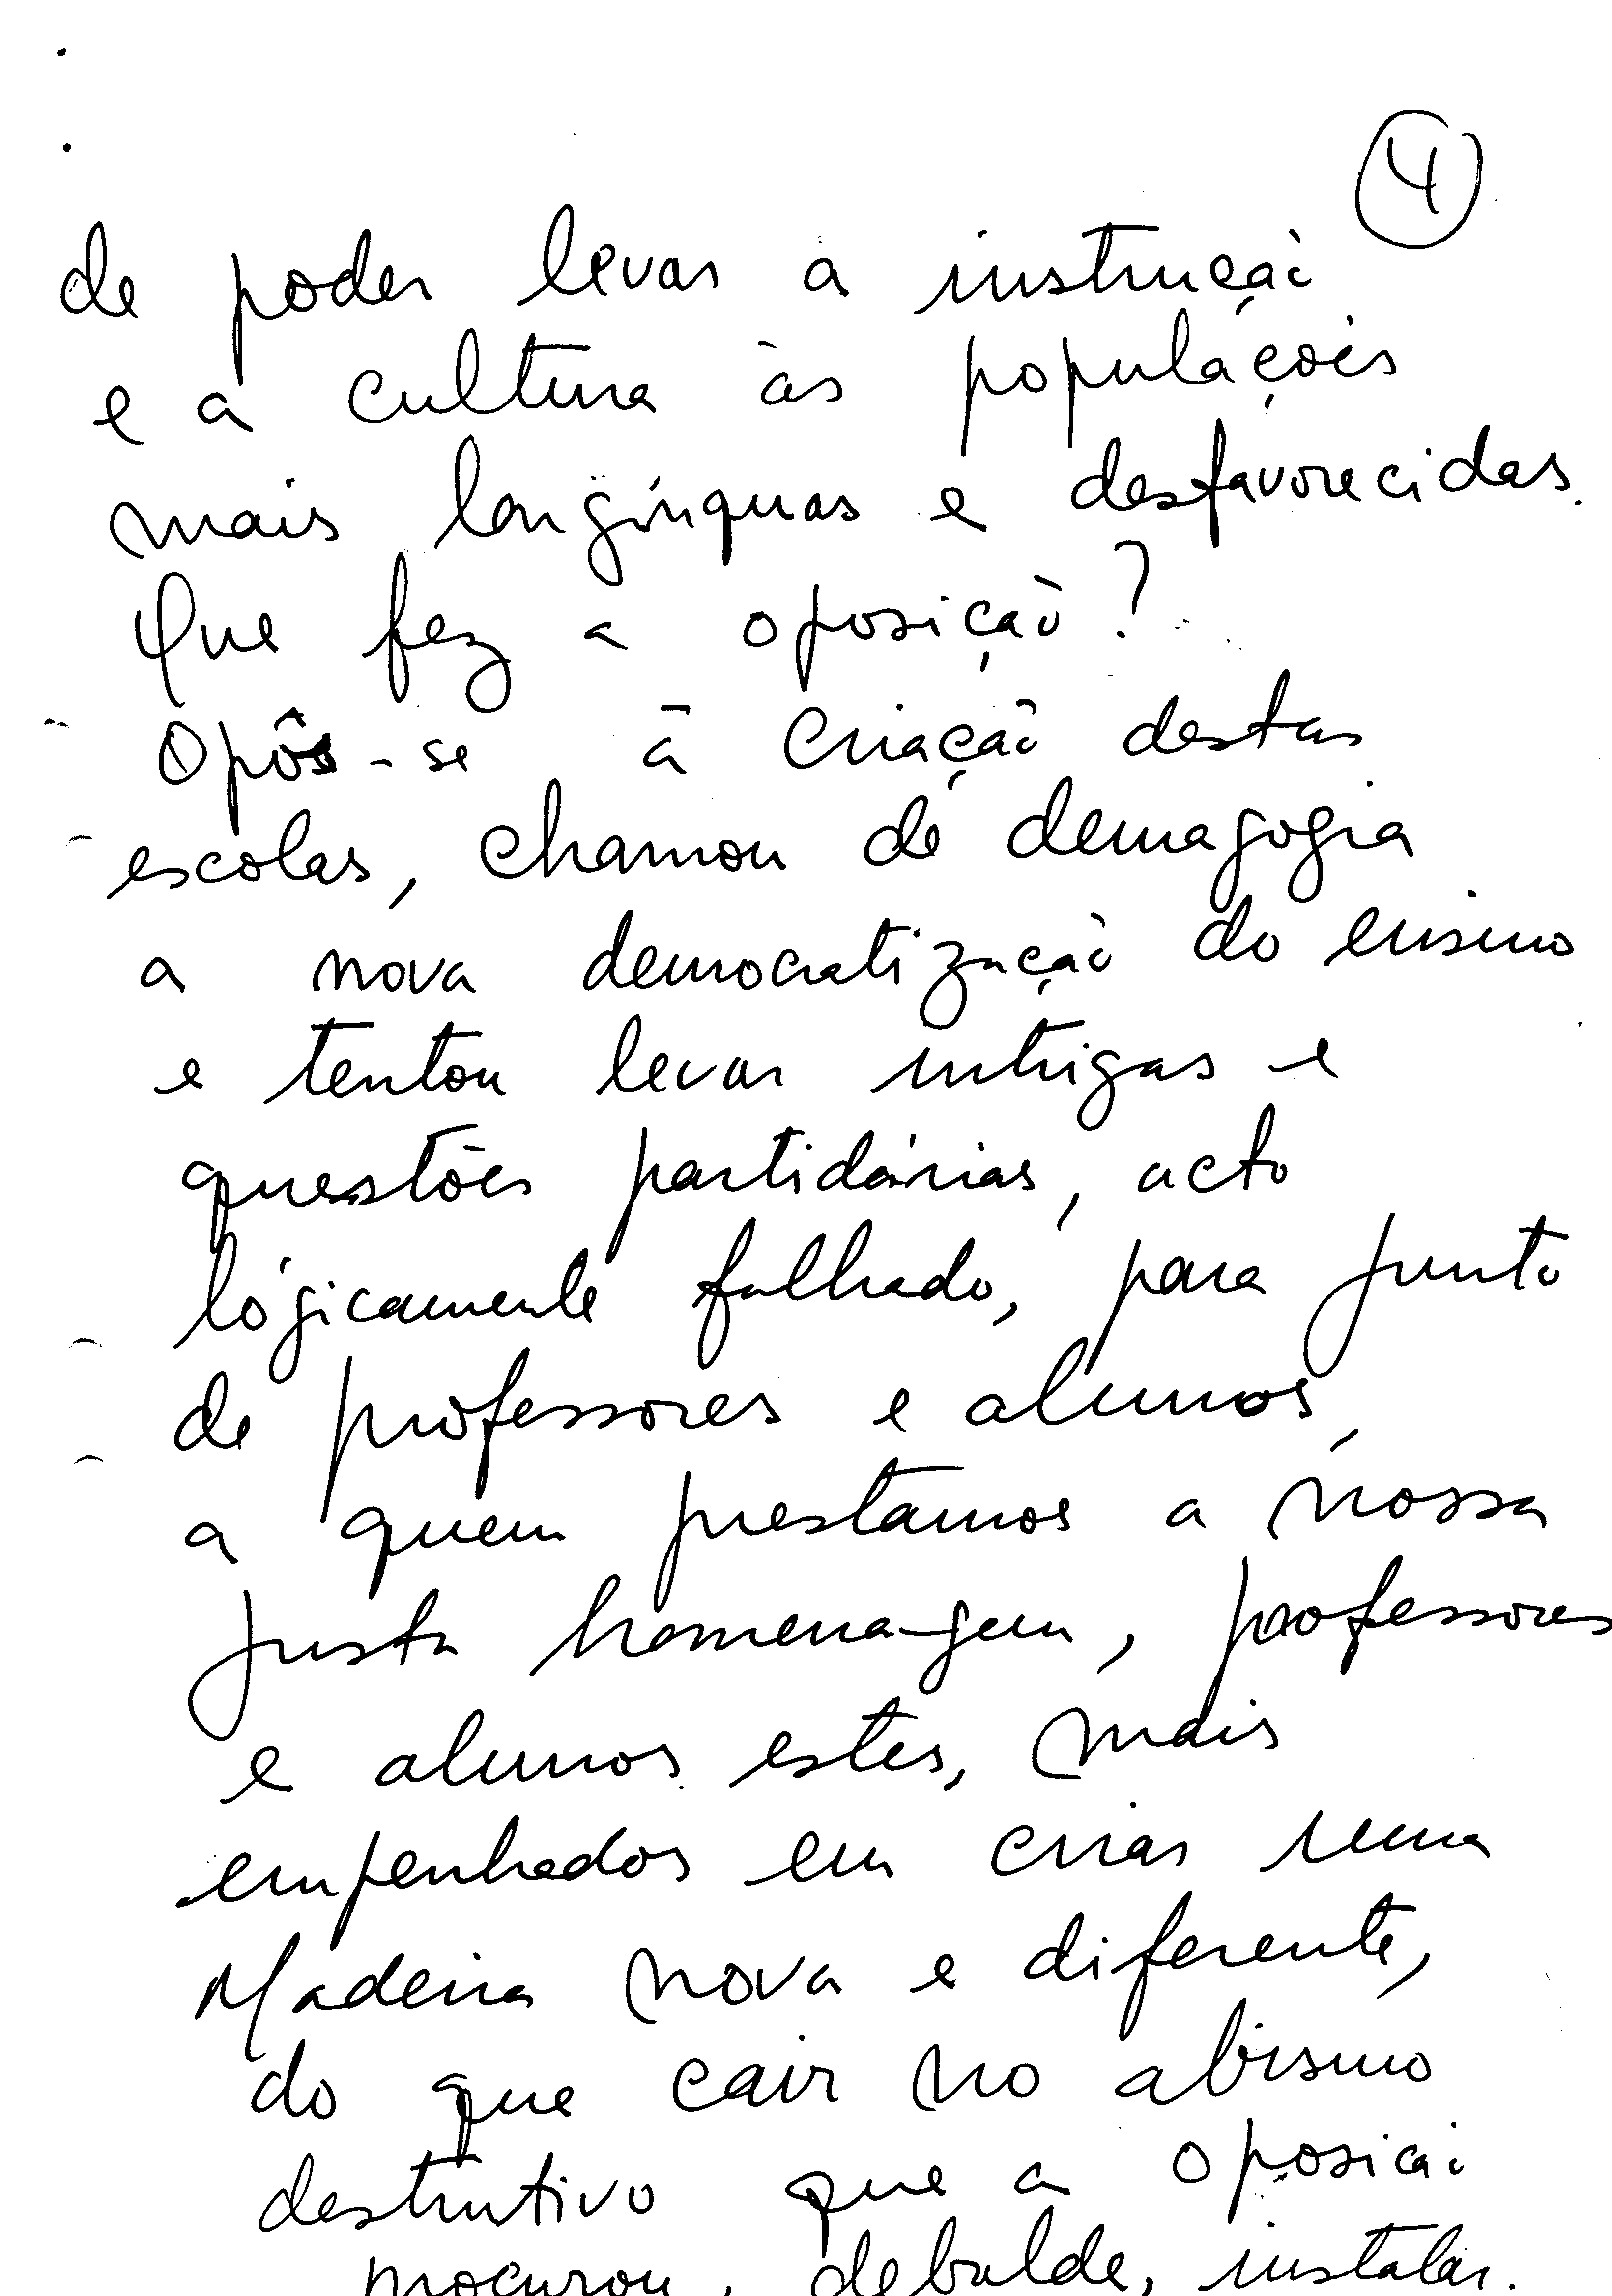 4
de poder levar a instrução
e a cultura às populações
mais longínquas e desfavorecidas.
Que fez a oposição?
Opôs-se à criação destas
escolas, chamou de demagogia
a nova democratização do ensino
e tentou levar intrigas e
questões partidárias, acto
lógicamente falhado, para junto
de professores e alunos,
a quem prestamos a nossa
justa homenagem, professores
e alunos estes, mais
empenhados em criar uma
Madeira nova e diferente,
do que cair no abismo
destrutivo que a oposição
procurou, debalde, instalar.